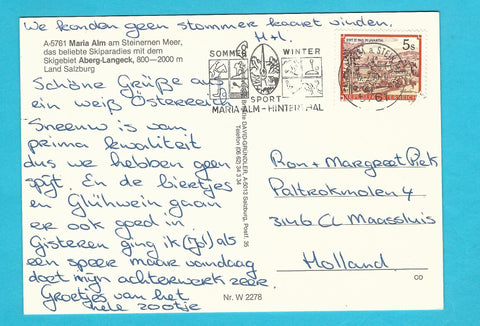 We konden geen stommer kaart vinden.
H+L.
A-5761 Maria Alm am Steinernen Meer,
das beliebte Skiparadies mit dem
Skigebiet Aberg-Langeck, 800—2000 m
Land Salzburg
Schöne Grüße aus
ein weiß Österreich
Sneeuw is van
prima kwaliteit
dus we hebben geen
spijt. En de biertjes
en Glühwein gaan
er ook goed in.
Gisteren ging ik (Jol) als
een speer maar vandaag
doet mijn achterwerk zeer.
Groetjes van het
hele zootje
Nr. W 2278
DAVID-GRÜNDLER, A-5013 Salzburg, Postf. 35
Telefon (06 62) 34 3 34
SOMMER WINTER
SPORT
MARIA ALM - HINTERTHAL
5s
Ron + Margreet Piek
Paltrokmolen 4
3146 CL Maassluis
Holland
CO